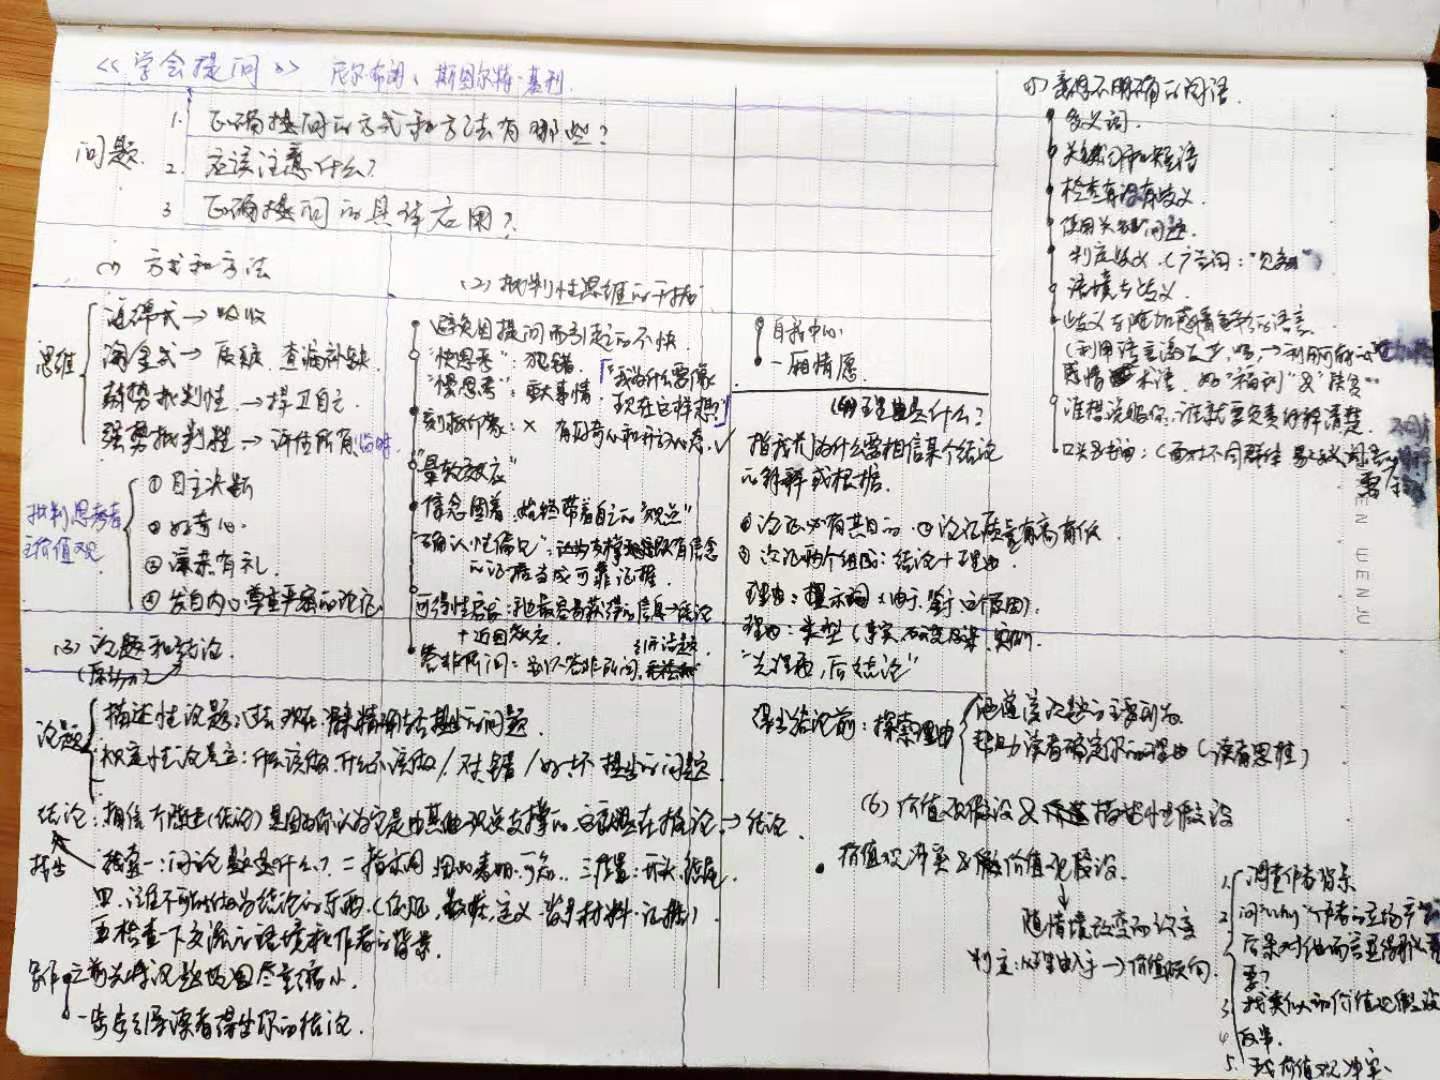 《学会提问》 尼尔·布朗、斯图尔特·基利
问题
1. 正确提问的方式和方法有哪些?
2. 应该注意什么?
3 正确提问的具体应用?
(1) 方式和方法
思维
海绵式→吸收
淘金式→质疑、查漏补缺
弱势批判性→捍卫自己
强势批判性→评估所有
批判思考者
主价值观
①自主决断
②好奇心
③谦恭有礼
④发自内心尊重严密的论证
(2) 批判性思维的干扰
避免因提问而引起的不快
"快思考":犯错
"慢思考":重大事情「我为什么要像
现在这样想?」
刻板印象:× 有好奇心和开放心态 ✓
"晕轮效应"
信念固着 始终带着自己的"观点"
"确认性偏见":
的证据当成可靠证据
可得性启发:把最容易获得的信息→结论
+近因效应
答非所问:
引开话题
自我中心
一厢情愿
(3) 论题和结论
论题
描述性论题:过去 现在
规定性论题:什么该做、什么不该做/对错/好坏 提出的问题
结论:相信 (结论)是因为你认为它是由其他观点支撑的。 →结论
找出
线索一:问论题是什么? 二指示词 三位置:开头、结尾
四、注意不可能作为结论的东西(例证、数据、定义、背景材料、证据)
五检查一下交流的语境和作者的背景
写作
之前先将论题范围尽量缩小
一步步引导读者得出你的结论
(4)理由是什么?
指我们为什么要相信某个结论
的解释或根据
①论证必有其目的 ②论证质量有高有低
③论证两个组成:结论+理由
理由:提示词(由于、鉴于、这个原因)
理由:类型(事实、研究
"先理由,后结论"
得出结论前:探索理由
帮助读者确定你的理由(读者思维)
(5) 意思不明确的词语
多义词
关键词和短语
检查有没有歧义
使用关键问题
判定歧义(广告词:"见效")
语境与歧义
歧义与附加感情色彩的语言
谁想说服你,谁就要负责解释清楚
(6) 价值观假设&描述性假设
价值观冲突&价值观假设
随情境改变而改变
判定:从理由入手→价值倾向
1. 调查作者背景
2 问为什么"作者的立场
后果对他而言显得那么重
要?
3 找类似的价值观假设
4 反串
5. 找价值观冲突
WEN WENJU